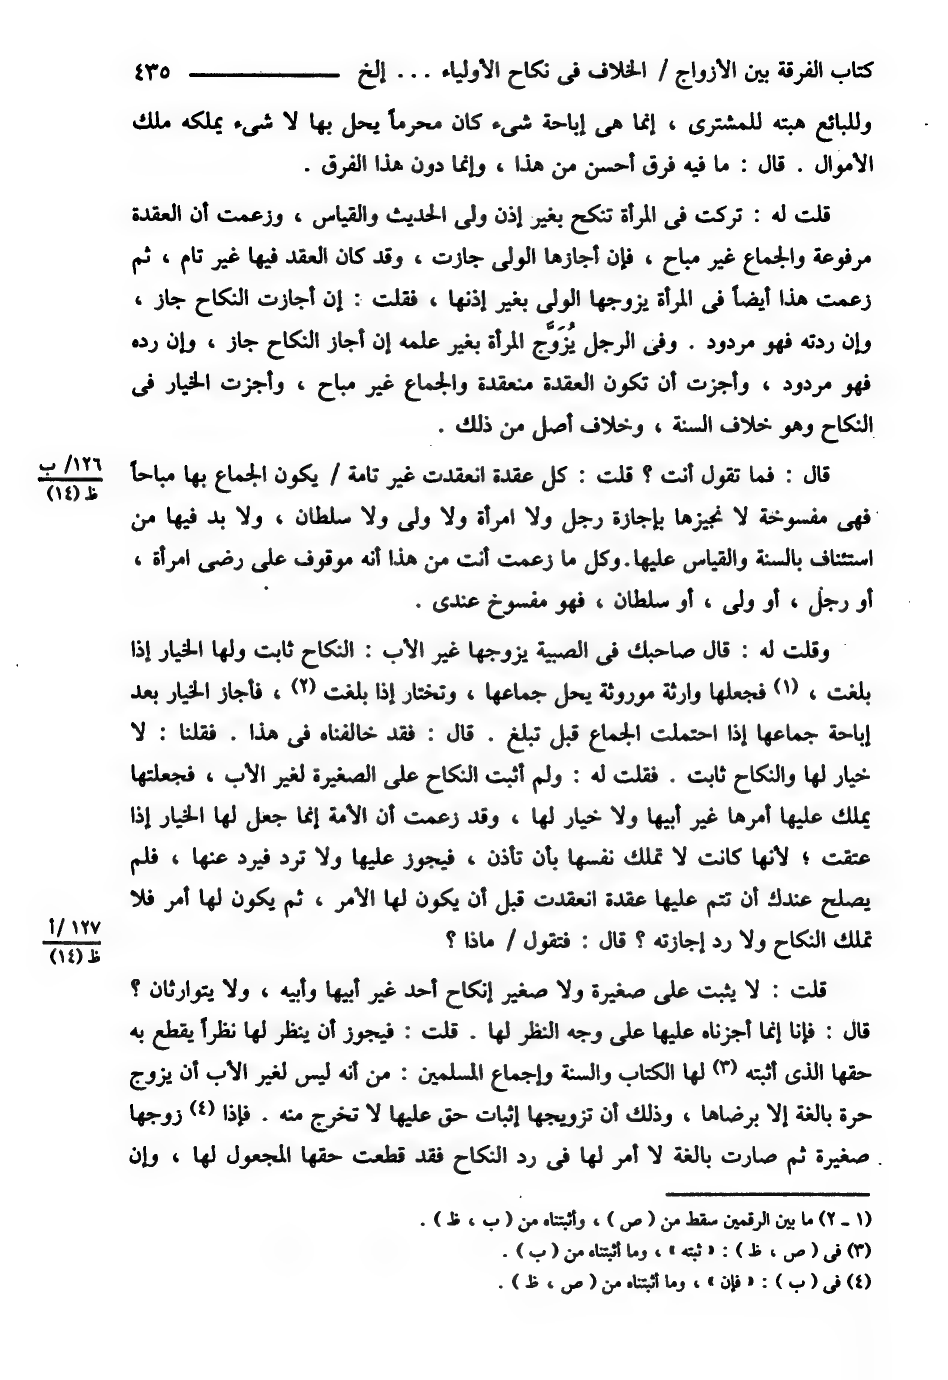 كتاب الفرقة بين الأزواج / الخلاف فى نكاح الأولياء ... إلخ ــــــــــــــــ ٤٣٥
وللبائع هبته للمشترى ، إنما هى إباحة شىء كان محرماً يحل بها لا شىء يملكه ملك
الأموال . قال : ما فيه فرق أحسن من هذا ، وإنما دون هذا الفرق .
قلت له : تركت فى المرأة تنكح بغير إذن ولى الحديث والقياس ، وزعمت أن العقدة
مرفوعة والجماع غير مباح ، فإن أجازها الولى جازت ، وقد كان العقد فيها غير تام ، ثم
زعمت هذا أيضاً فى المرأة يزوجها الولى بغير إذنها ، فقلت : إن أجازت النكاح جاز ،
وإن ردته فهو مردود . وفى الرجل يُزَوَّج المرأة بغير علمه إن أجاز النكاح جاز ، وإن رده
فهو مردود ، وأجزت أن تكون العقدة منعقدة والجماع غير مباح ، وأجزت الخيار فى
النكاح وهو خلاف السنة ، وخلاف أصل من ذلك .
قال : فما تقول أنت ؟ قلت : كل عقدة انعقدت غير تامة / يكون الجماع بها مباحاً
١٢٦/ ب
ظ (١٤)
فهى مفسوخة لا نجيزها بإجازة رجل ولا امرأة ولا ولى ولا سلطان ، ولا بد فيها من
استئناف بالسنة والقياس عليها.وكل ما زعمت أنت من هذا أنه موقوف على رضى امرأة ،
أو رجل ، أو ولى ، أو سلطان ، فهو مفسوخ عندى .
وقلت له : قال صاحبك فى الصبية يزوجها غير الأب : النكاح ثابت ولها الخيار إذا
بلغت ، (١) فجعلها وارثة موروثة يحل جماعها ، وتختار إذا بلغت (٢) ، فأجاز الخيار بعد
إباحة جماعها إذا احتملت الجماع قبل تبلغ . قال : فقد خالفناه فى هذا . فقلنا : لا
خيار لها والنكاح ثابت . فقلت له : ولم أثبت النكاح على الصغيرة لغير الأب ، فجعلتها
يملك عليها أمرها غير أبيها ولا خيار لها ، وقد زعمت أن الأمة إنما جعل لها الخيار إذا
عتقت ؛ لأنها كانت لا تملك نفسها بأن تأذن ، فيجوز عليها ولا ترد فيرد عنها ، فلم
يصلح عندك أن تتم عليها عقدة انعقدت قبل أن يكون لها الأمر ، ثم يكون لها أمر فلا
تملك النكاح ولا رد إجازته ؟ قال : فتقول / ماذا ؟
١٢٧ /أ
ظ (١٤)
قلت : لا يثبت على صغيرة ولا صغير إنكاح أحد غير أبيها وأبيه ، ولا يتوارثان ؟
قال : فإنا إنما أجزناه عليها على وجه النظر لها . قلت : فيجوز أن ينظر لها نظراً يقطع به
حقها الذى أثبته (٣) لها الكتاب والسنة وإجماع المسلمين : من أنه ليس لغير الأب أن يزوج
حرة بالغة إلا برضاها ، وذلك أن تزويجها إثبات حق عليها لا تخرج منه . فإذا (٤) زوجها
صغيرة ثم صارت بالغة لا أمر لها فى رد النكاح فقد قطعت حقها المجعول لها ، وإن
(١ ـ ٢) ما بين الرقمين سقط من ( ص ) ، وأثبتناه من ( ب ، ظ ) .
(٣) فى ( ص ، ظ ) : « ثبته » ، وما أثبتناه من ( ب ) .
(٤) فى ( ب ) : « فإن » ، وما أثبتناه من ( ص ، ظ ) .